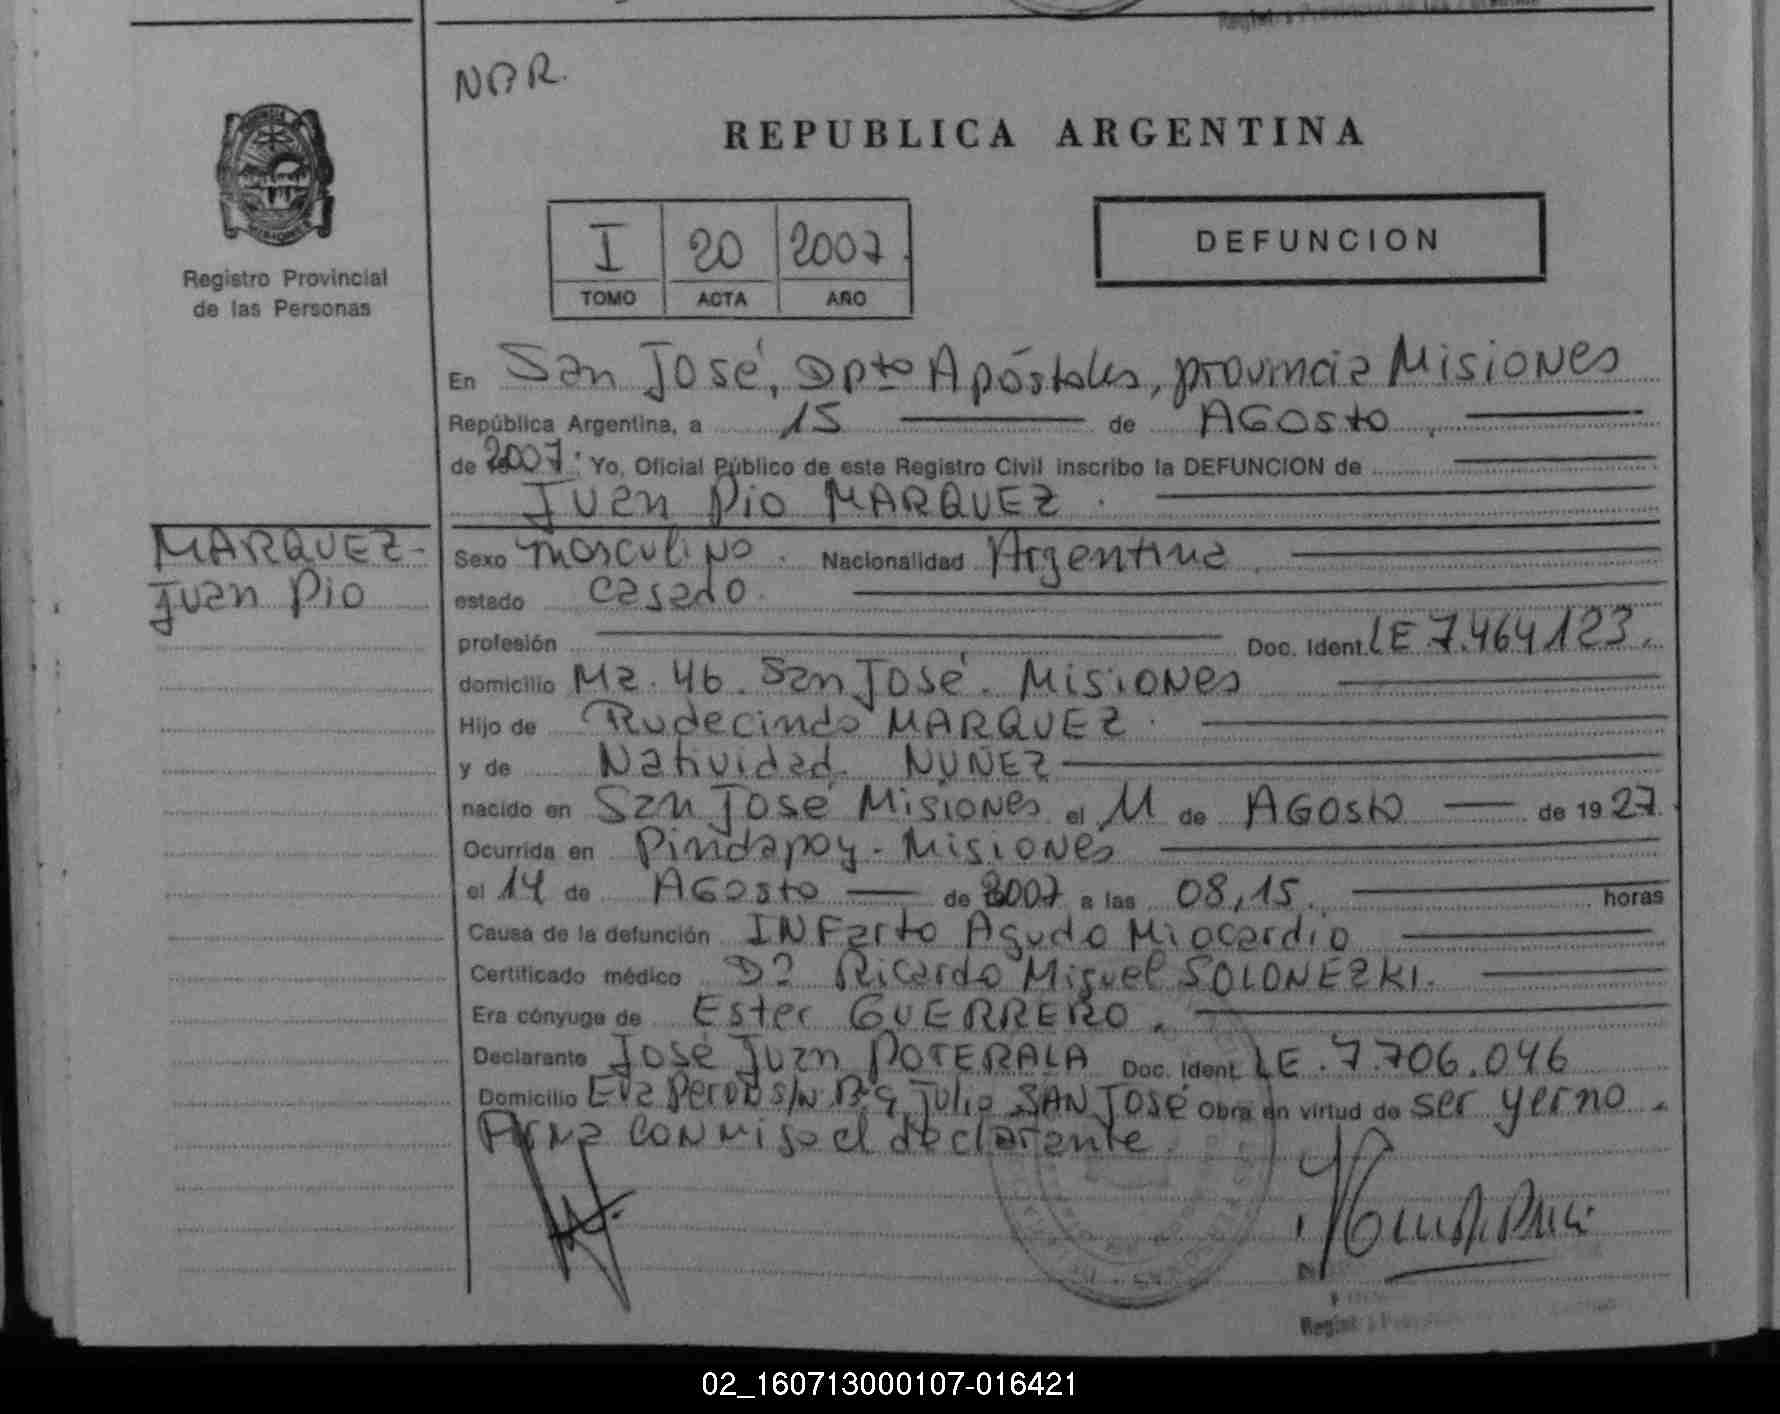 NAR.
REPUBLICA ARGENTINA
Registro Provincial
de las Personas
I 20 2007
TOMO ACTA AÑO
DEFUNCION
En San José, Dpto Apóstoles, provincia Misiones
República Argentina, a 15 de AGosto
de 2007. Yo, Oficial Público de este Registro Civil inscribo la DEFUNCION de
Juan Pio MARQUEZ.
MARQUEZ-
Juan Pio
Sexo masculino. Nacionalidad Argentina
estado casado.
profesión Doc. Ident. LE 7.464123.
domicilio Mz. 46. San José. Misiones
Hijo de Rudecindo MARQUEZ.
y de Natividad NUÑEZ
nacido en San José Misiones el 11 de AGosto de 1927.
Ocurrida en Pindapoy - Misiones
el 14 de AGosto de 2007 a las 08,15. horas
Causa de la defunción INFarto Agudo Miocardio
Certificado médico Ricardo Miguel SOLONEZKI.
Era cónyuge de Ester GUERRERO.
Declarante José Juan POTERALA Doc. Ident. LE. 7.706.046
Domicilio Eva Peron s/N Bº 9 Julio SAN José Obra en virtud de ser yerno.
Firma conmigo el declarante.
02_160713000107-016421